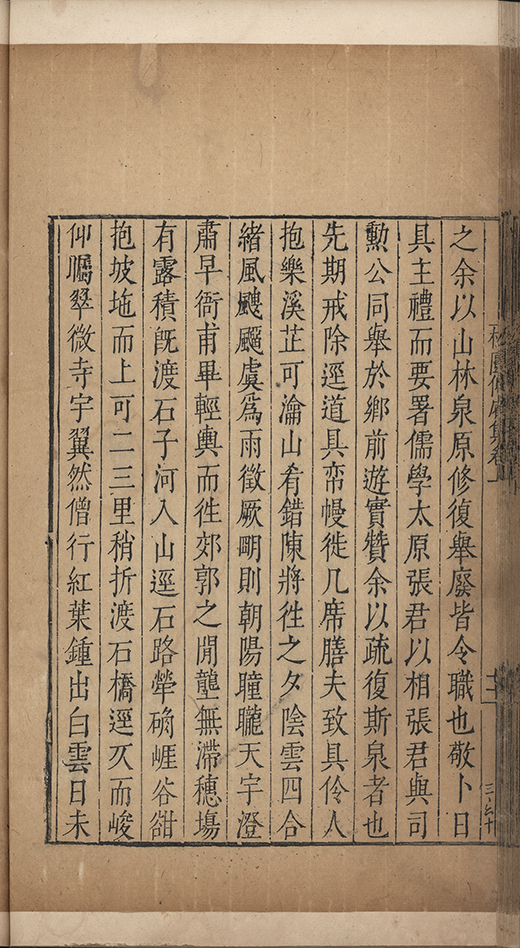 之余以山林泉原修復舉廢皆令職也敬卜日
具主禮而要署儒學太原張君以相張君與司
勲公同舉於鄉前遊實贊余以疏復斯泉者也
先期戒除逕道具帟幔徙几席膳夫致具伶人
抱樂溪芷可瀹山肴錯陳將徃之夕陰雲四合
緒風颼飀虞爲雨徵厥明則朝陽曈曨天宇澄
肅早衙甫畢輕輿而徃郊郭之閒壠無滯穗塲
有露積旣渡石子河入山逕石路犖确崕谷谽
抱坡地而上可二三里稍折渡石橋逕仄而峻
仰矚翠微寺宇翼然僧行紅葉鍾出白雲日未